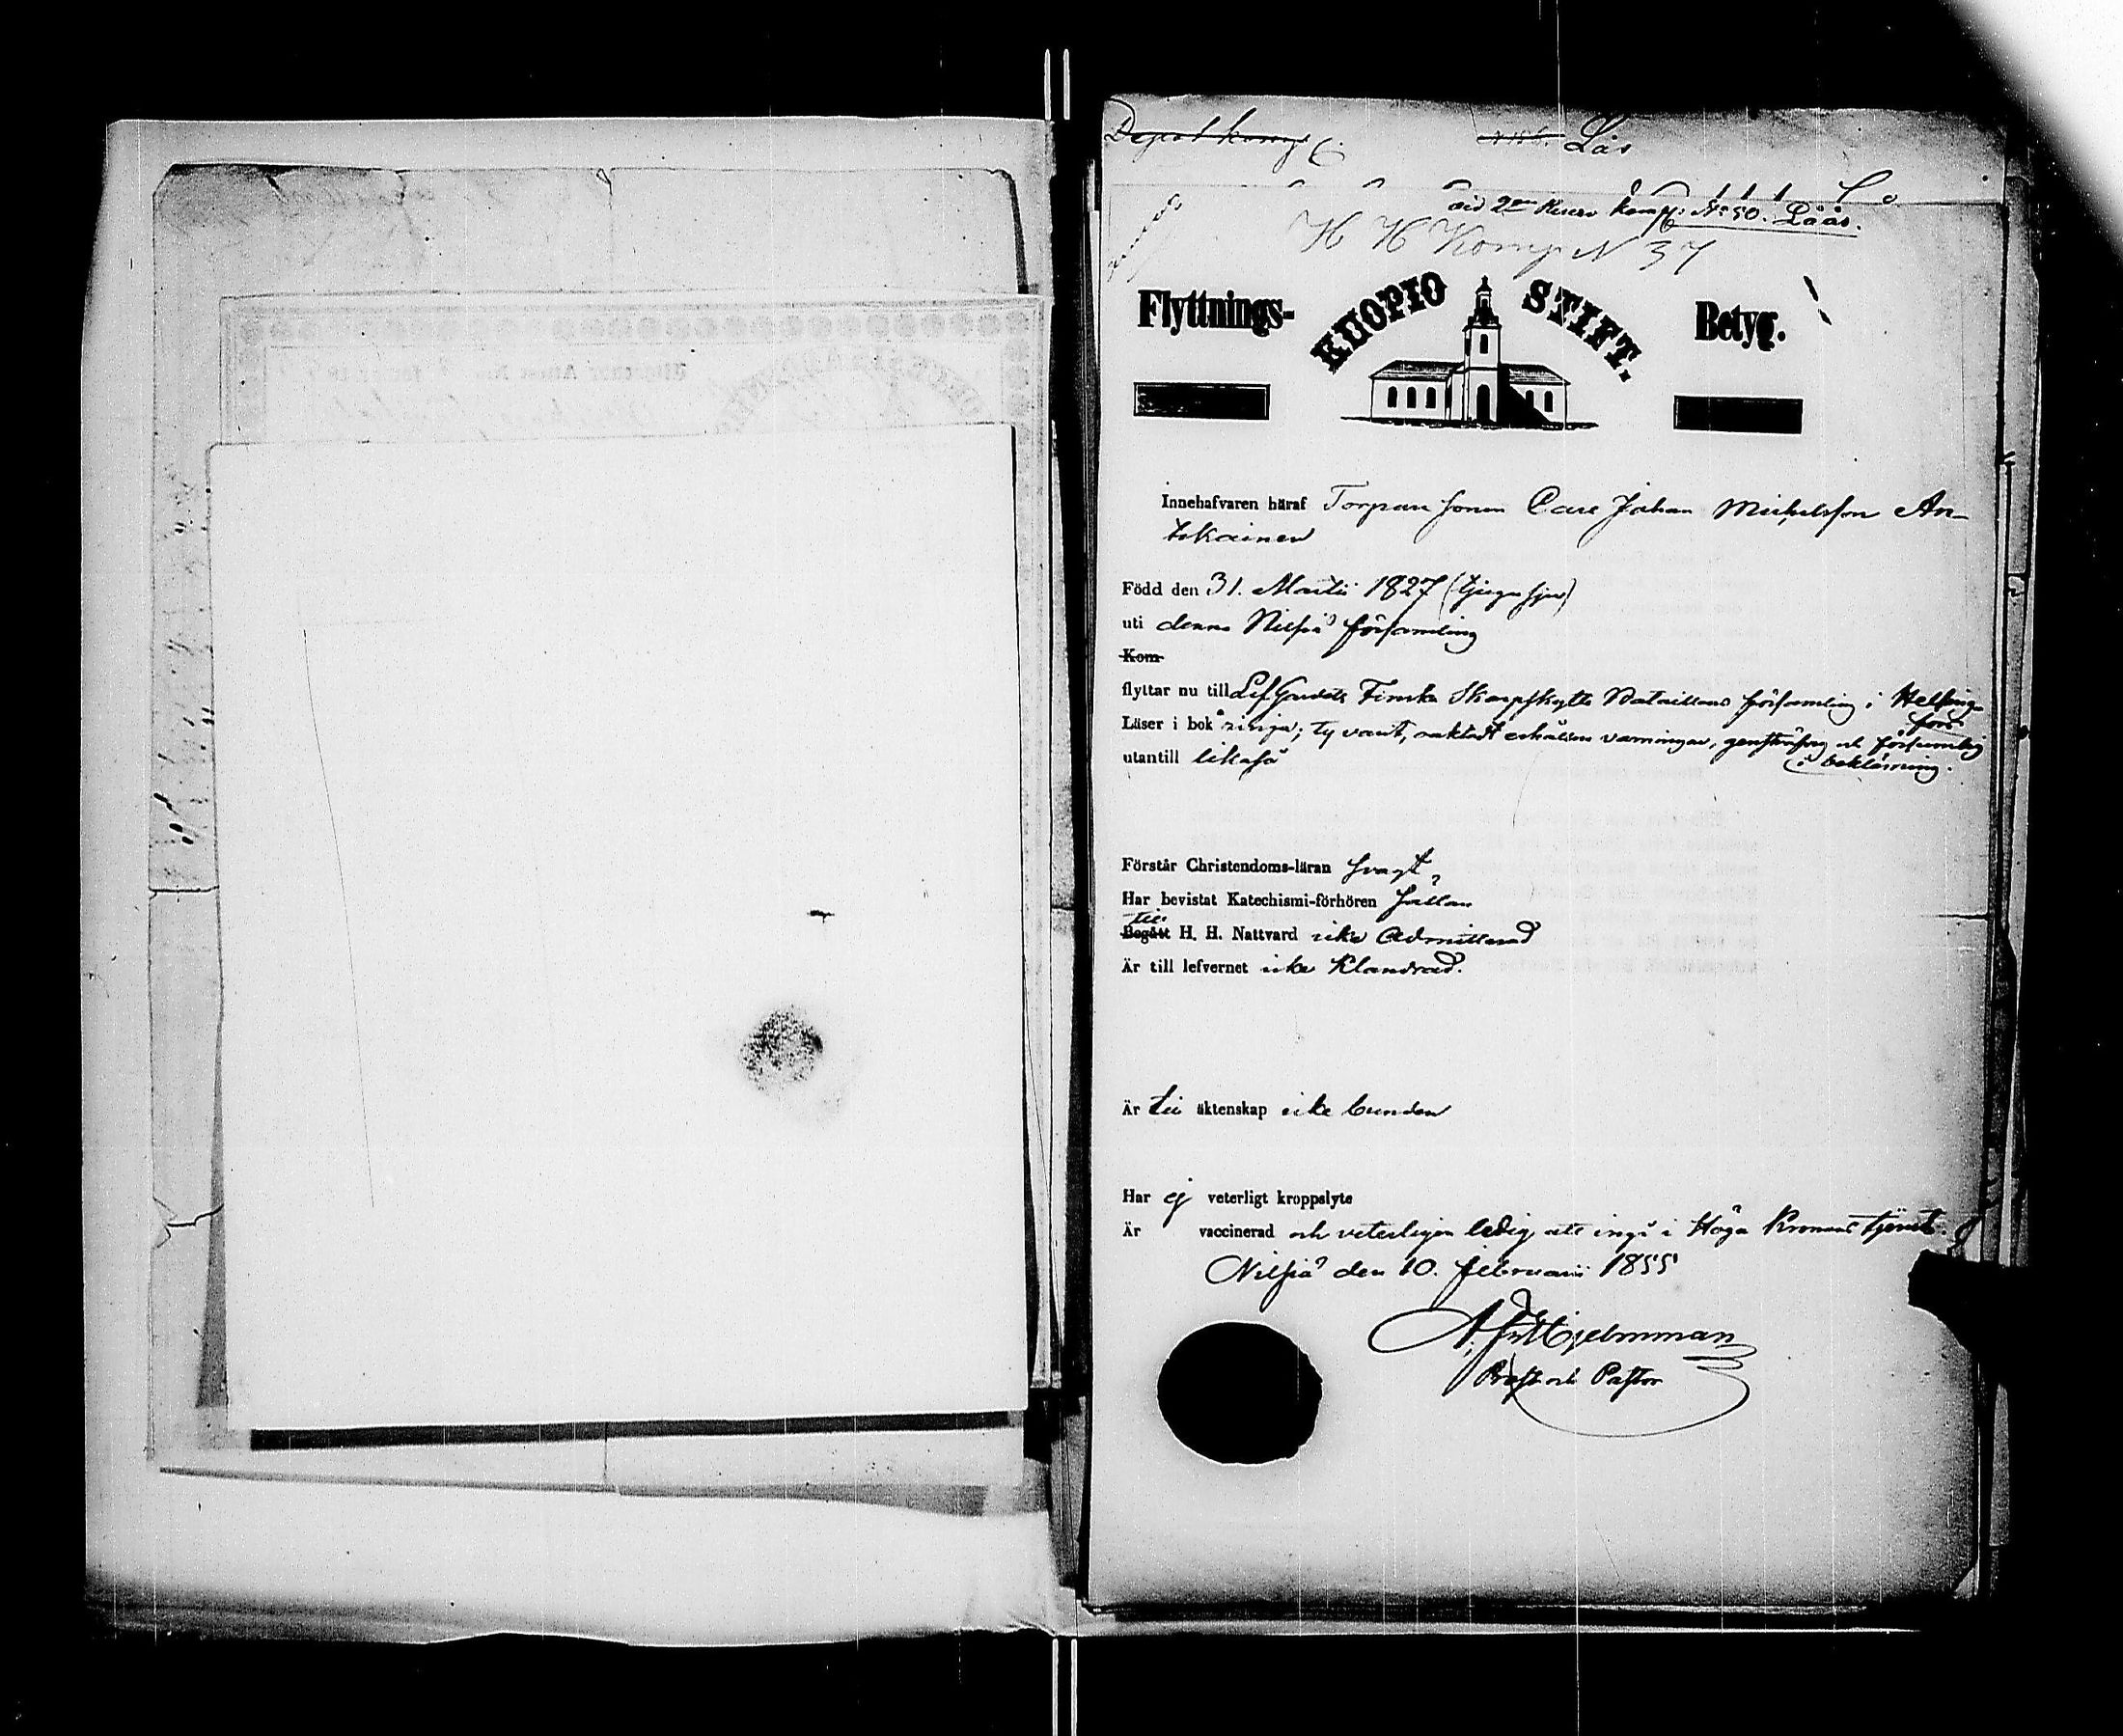 Depot komp
Lås
vid 2dra Reserv Komp: No 50. Låås.
H H Komp N 37
Flyttnings- KUOPIO STIFT. Betyg.
Innehafvaren häraf Torpare sonen Carl Johan Michelsson An-
tikainen
Född den 31. Martii 1827 (tjugusju)
uti denna Nilsiä församling
Kom
flyttar nu till Lif Gardets Finska Skarpskytte Bataillons församling i Helsing-
fors
Läser i bok ringa; ty varit, oaktadt erhållna varningar, gensträfvig och försumlig
i bokläsning.
utantill likaså
Förstår Christendoms-läran svagt,
Har bevistat Katechismi-förhören sällan
till
Begått H. H. Nattvard icke admitterad
Är till lefvernet icke klandrad.
Är till äktenskap icke bunden
Har ej veterligt kroppslyte
Är vaccinerad och veterligen ledig att ingå i Höga Kronans tjenst.
Nilsiä den 10. februarii 1855
Hjelmman
Prost och Pastor